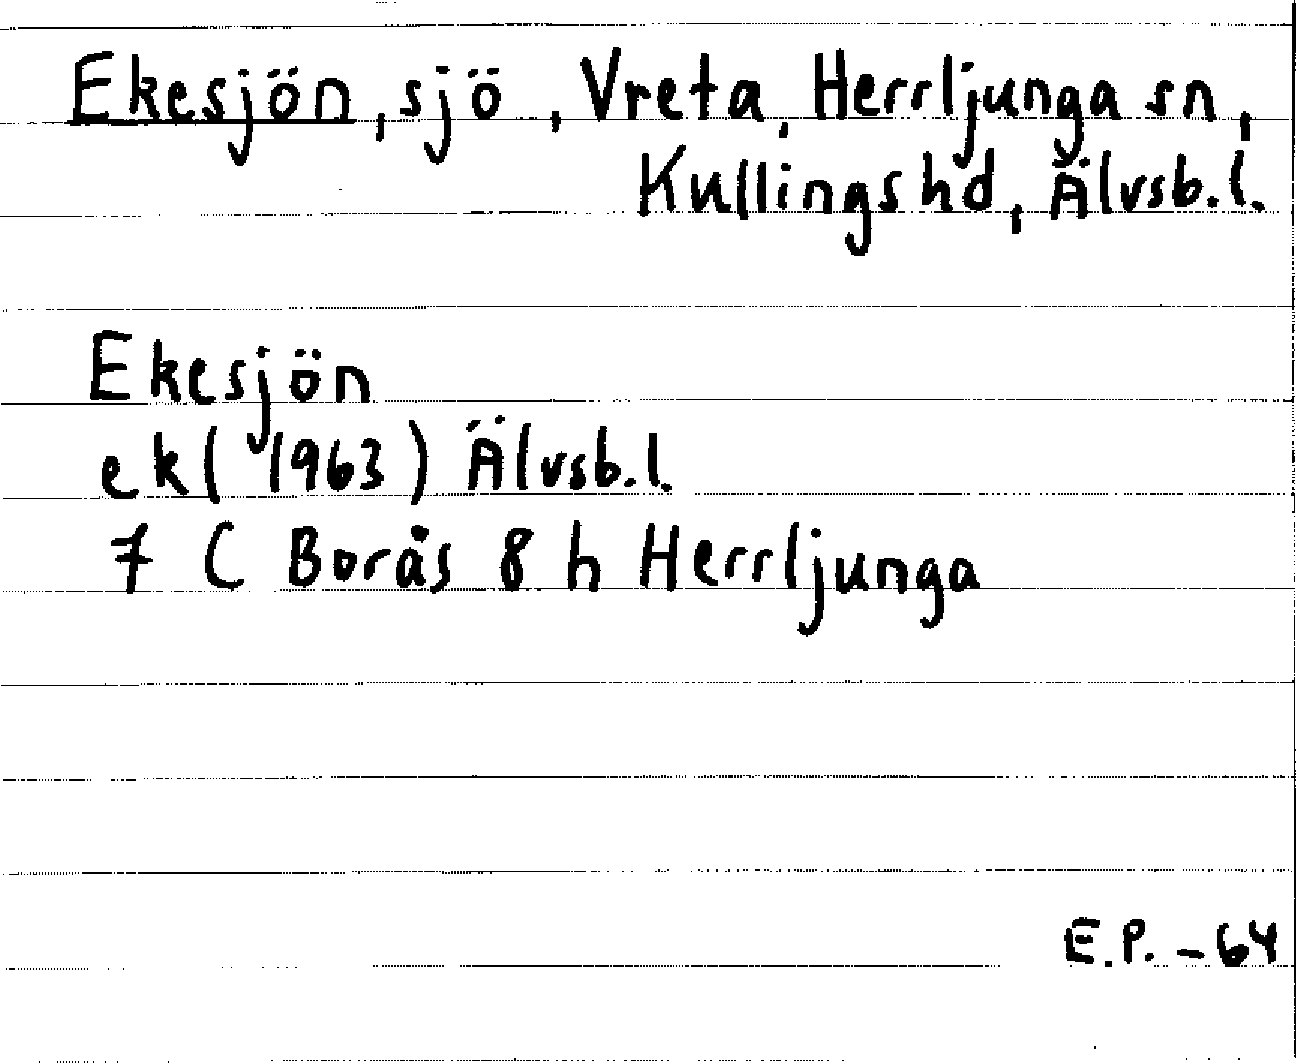 Ekesjön, sjö, Vreta, Herrljunga sn,
Kullings hd, Älvsb.l.
Ekesjön
ek (1963) Älvsb.l.
7 C Borås 8 h Herrljunga
E.P. -64